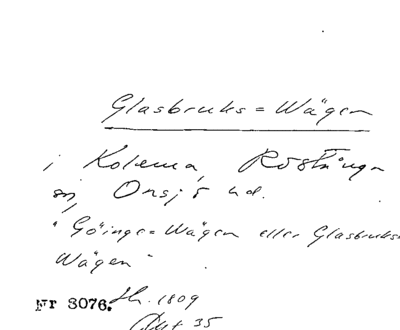 Glasbruks = Wägen
i Kolema, Röstånga
sn, Onsjö hd.
"Göinge = Wägen eller Glasbruks
Wägen"
Nr 3076. Hn. 1809
Akt 35